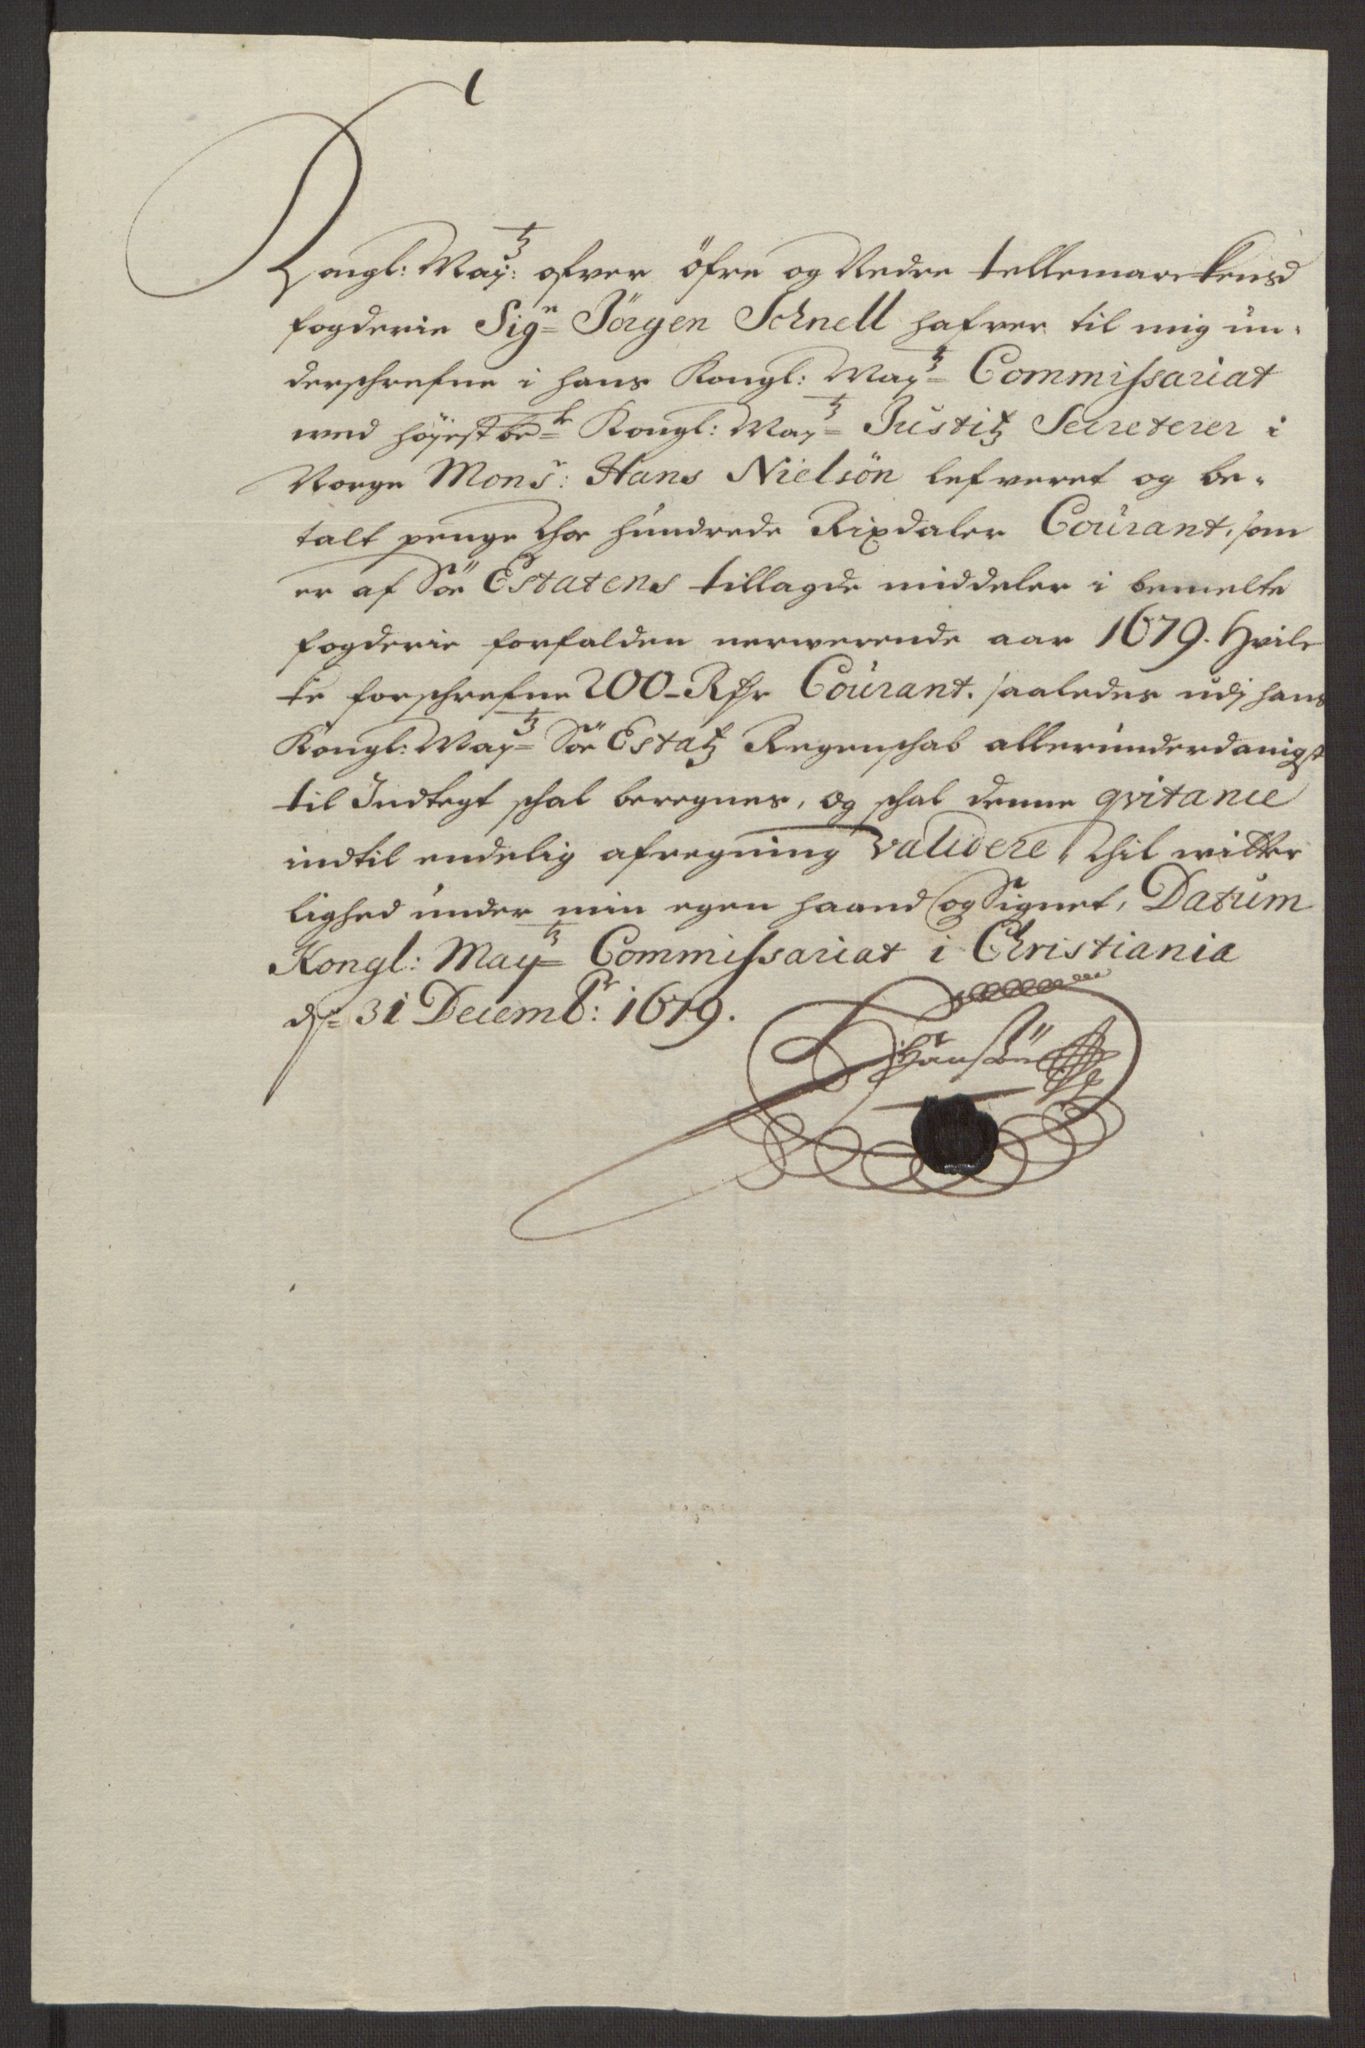 Kongl: May:tz ofver öfre og Nedre tellemarckens
fogderie Sigr Jörgen Schnell hafver til mig un-
derschrefne i hans Kongl: Maytz Commissariat
wed höyestbete Kongl: Maytz Justitz Secreterer i
Norge Monsr: Hans Nielsön lefveret og be-
talt penge thoe hundrede Rixdaler Courant, som
er af Söe Estatens tillagde middeler i bemelte
fogderie forfalden nerwerende aar 1679. Hvilc
ke forschrefne 200 - Rdr Courant. saaledes udj hans
Kongl: Maytz Söe Estatz Regenschab allerunderdanigst
til Indtegt schal beregnes, og schal denne qvitance
indtil endelig afregning validere, thil witter
lighed under min egen haand og Signet, Datum
Kongl: Maytz Commissariat i Christiania
dn 31 Decembr: 1679.